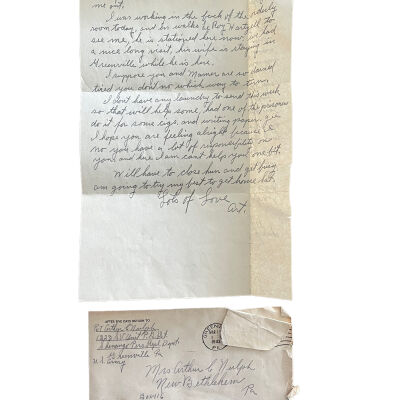 me out.
I was working in the back of the orderly
room today, and in walks Le Roy to
see me, he is stationed here now, we had
a nice long visit, his wife is staying in
Greenville while he is here.
I suppose you and Mamer are so darned
tired you don't no which way to turn.
I don't have any laundry to send this week
so that will help some, had one of the prisoners
do it for some cigs. and writing paper.
I hope you are feeling alright because I
no you have a lot of responsibility on
you and here I am cant help you one bit.
Will have to close hun and get busy
am going to try my best to get home Sat.
Lots of Love
Art.
AFTER FIVE DAYS RETURN TO
Pvt Arthur C Nulph
Shenango Pers Repl Depot
Greenville Pa
U.S. Army
GREENVILLE
1943
PA.
Mrs Arthur C Nulph
New Bethlehem
Pa